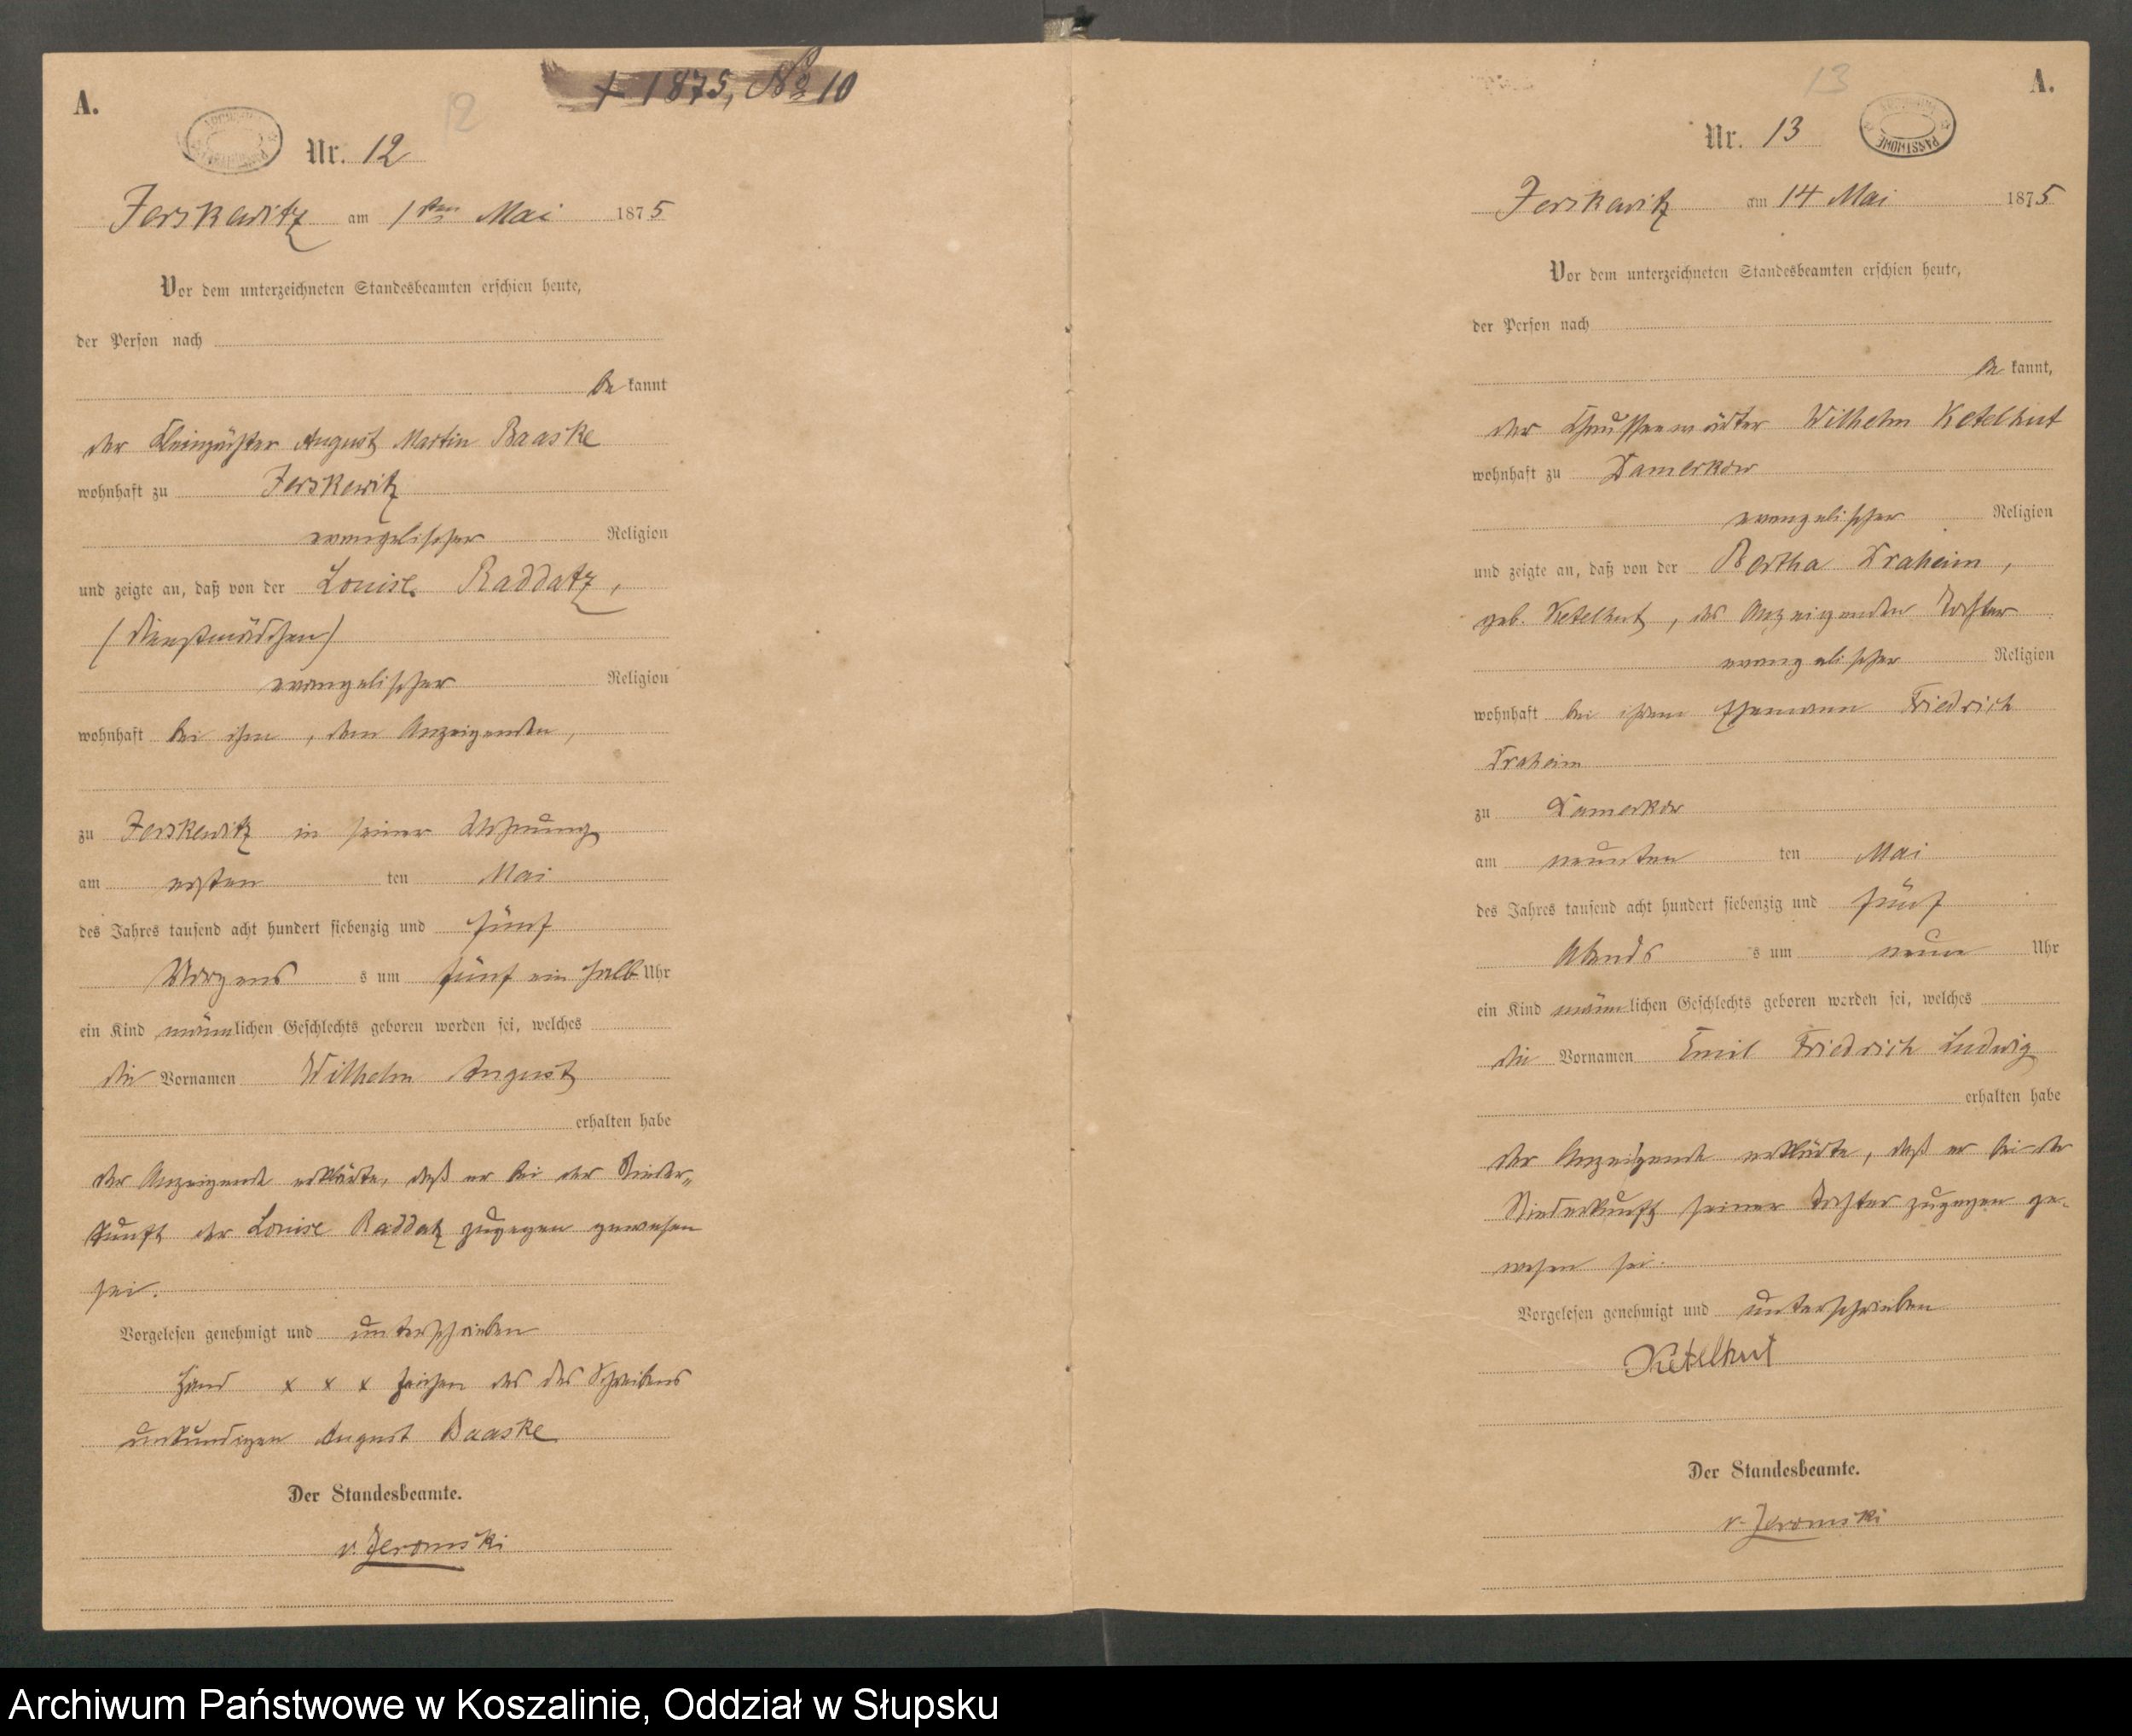 † 1875, No 10
A.
12
Nr. 12
Jerskewitz am 1ten Mai 1875
Vor dem unterzeichneten Standesbeamten erschien heute,
der Person nach
be kannt
der Kleinpächter August Martin Baaske
wohnhaft zu Jerskewitz
evangelischer Religion
und zeigte an, daß von der Louise Raddatz,
(Dienstmädchen)
evangelischer Religion
wohnhaft bei ihm, dem Anzeigenden,
zu Jerskewitz in seiner Wohnung
am ersten ten Mai
des Jahres tausend acht hundert siebenzig und fünf
Morgens s um fünf ein halb Uhr
ein Kind männlichen Geschlechts geboren worden sei, welches
die Vornamen Wilhelm August
erhalten habe
der Anzeigende erklärte, daß er bei der Nieder„
kunft der Louise Raddatz zugegen gewesen
sei.
Vorgelesen genehmigt und unterschrieben
Hand x x x zeichen des des Schreibens
unkundigen August Baaske
Der Standesbeamte.
v. Jeromski
13
A.
Nr. 13
PAŃSTWOWE
Jerskewitz am 14 Mai 1875
Vor dem unterzeichneten Standesbeamten erschien heute,
der Person nach
be kannt,
der Chausseewärter Wilhelm Ketelhut
wohnhaft zu Damerkow
evangelischer Religion
und zeigte an, daß von der Bertha Draheim,
geb. Ketelhut, des Anzeigenden Tochter
evangelischer Religion
wohnhaft bei ihrem Ehemann Friedrich
Draheim
zu Damerkow
am neunten ten Mai
des Jahres tausend acht hundert siebenzig und fünf
Abends s um neun Uhr
ein Kind männlichen Geschlechts geboren worden sei, welches
die Vornamen Emil Friedrich Ludwig
erhalten habe
der Anzeigende erklärte, daß er bei der
Niederkunft seiner Tochter zugegen ge-
wesen sei.
Vorgelesen genehmigt und unterschrieben
Ketelhut
Der Standesbeamte.
v. Jeromski
Archiwum Państwowe w Koszalinie, Oddział w Słupsku